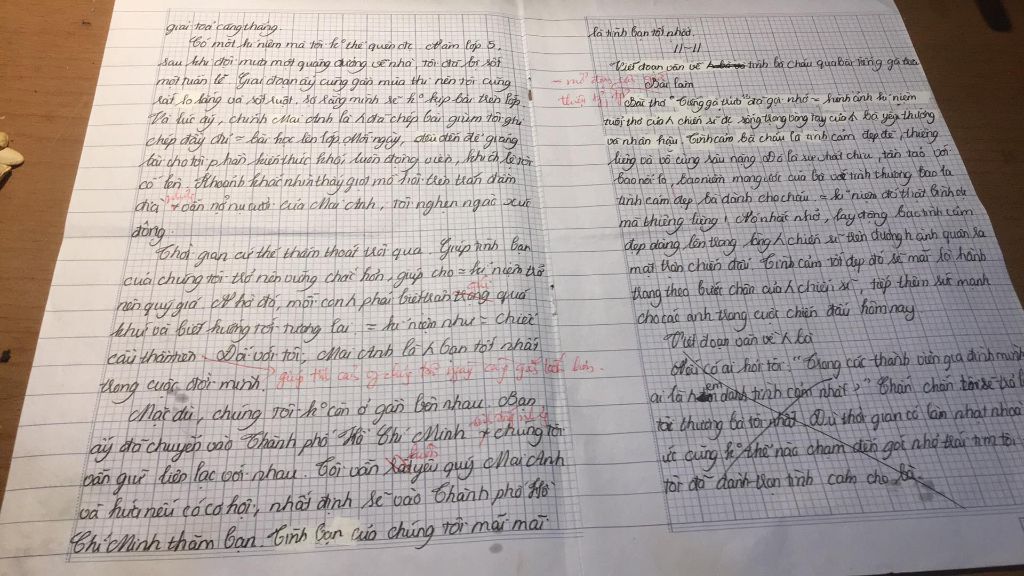 giải toả căng thẳng.
Có một kỉ niệm mà tôi k° thể quên đc. Năm lớp 5,
sau khi đội mưa một quãng đường về nhà tôi đã bị sốt
một tuần lễ. Giai đoạn ấy cũng gần mùa thi nên tôi cũng
rất lo lắng và sốt ruột, sợ rằng mình sẽ k° kịp bài trên lớp.
Và lúc ấy, chính Mai Anh là
chép đầy đủ = bài học lên lớp. Mỗi ngày, đều đến để giảng
lại cho tôi phần kiến thức khó, luôn động viên, khích lệ tôi
cố lên. Khoảnh khắc nhìn thấy giọt mồ hôi trên trán đầm
đìa vẫn nở nụ cười của Mai Anh, tôi nghẹn ngào xúc
động.
Thời gian cứ thế thấm thoát trôi qua. Giúp tình bạn
của chúng tôi trở nên vững chắc hơn, giúp cho = kỉ niệm trở
nên quý giá. Nhờ đó, mỗi con λ phải biết trân trọng quá
khứ và biết hướng tới tương lai = kỉ niệm như = chiếc
cầu thần tiên. Đối với tôi, Mai Anh là λ bạn tốt nhất
trong cuộc đời mình.
Mặc dù, chúng tôi k° còn ở gần bên nhau. Bạn
ấy đã chuyển vào Thành phố Hồ Chí Minh chúng tôi
vẫn giữ liên lạc với nhau. Tôi vẫn yêu quý Mai Anh
và hứa nếu có cơ hội, nhất định sẽ vào Thành phố Hồ
Chí Minh thăm bạn. Tình bạn của chúng tôi mãi mãi
là tình bạn tốt nhất.
Viết đoạn văn về tình bà cháu qua bài tiếng gà trưa
Bài làm
Bài thơ "Tiếng gà trưa" đã gợi nhớ = hình ảnh kỉ niệm
tuổi thơ của λ chiến sĩ đc sống trong vòng tay của λ bà yêu thương
và nhân hậu. Tình cảm bà cháu là tình cảm đẹp đẽ, thiêng
liêng và vô cùng sâu nặng. Đó là sự chắt chiu, tần tảo với
bao nỗi lo, bao niềm mong ước của bà với tình thương bao la
tình cảm đẹp bà dành cho cháu. = kỉ niệm đó thật bình dị
mà thiêng liêng! Nó nhắc nhở, lay động bao tình cảm
đẹp dâng lên trong lòng λ chiến sĩ trên đường hành quân ra
mặt trận chiến đấu. Tình cảm tốt đẹp đó sẽ mãi là hành
trang theo bước chân của λ chiến sĩ, tiếp thêm sức mạnh
cho các anh trong cuộc chiến đấu hôm nay.
Viết đoạn văn về λ bà
Nếu có ai hỏi tôi: "Trong các thành viên gia đình mình
ai là λ em dành tình cảm nhất?" Chắn chắn
tôi thương bà tôi nhất. Dù thời gian có làm nhạt nhoà
kí ức cũng k° thể nào chạm đến gợi nhớ trái tim tôi
tôi đã dành trọn tình cảm cho bà.